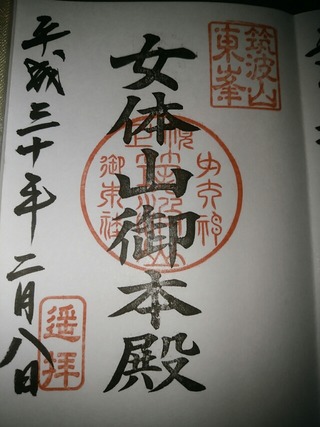 筑波山
東峯
女体山御本殿
平成三十年二月八日
遥拝